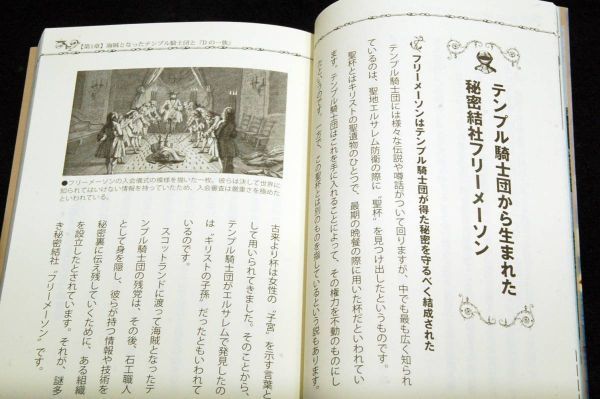 テンプル騎士団から生まれた
秘密結社フリーメーソン
フリーメーソンはテンプル騎士団が得た秘密を守るべく結成された
テンプル騎士団には様々な伝説や噂話がついて回りますが、中でも最も広く知られ
ているのは、聖地エルサレム防衛の際に〝聖杯〟を見つけ出したというものです。
聖杯とはキリストの聖遺物のひとつで、最期の晩餐の際に用いた杯だといわれてい
ます。テンプル騎士団はこれを手に入れることによって、その権力を不動のものにし
たというのです。一方で、この聖杯とは別のものを指しているという説もあります。
【第1章】海賊となったテンプル騎士団と『Dの一族』
●フリーメーソンの入会儀式の模様を描いた一枚。彼らは決して世界に
知られてはいけない情報を持っていたため、入会審査は厳重さを極めた
といわれている。
古来より杯は女性の〝子宮〟を示す言葉と
して用いられてきました。そのことから、
テンプル騎士団がエルサレムで発見したの
は〝キリストの子孫〟だったともいわれて
いるのです。
スコットランドに渡って海賊となったテ
ンプル騎士団の残党は、その後、石工職人
として身を隠し、彼らが持つ情報や技術を
秘密裏に伝え残していくために、ある組織
を設立したとされています。それが、謎多
き秘密結社〝フリーメーソン〟です。